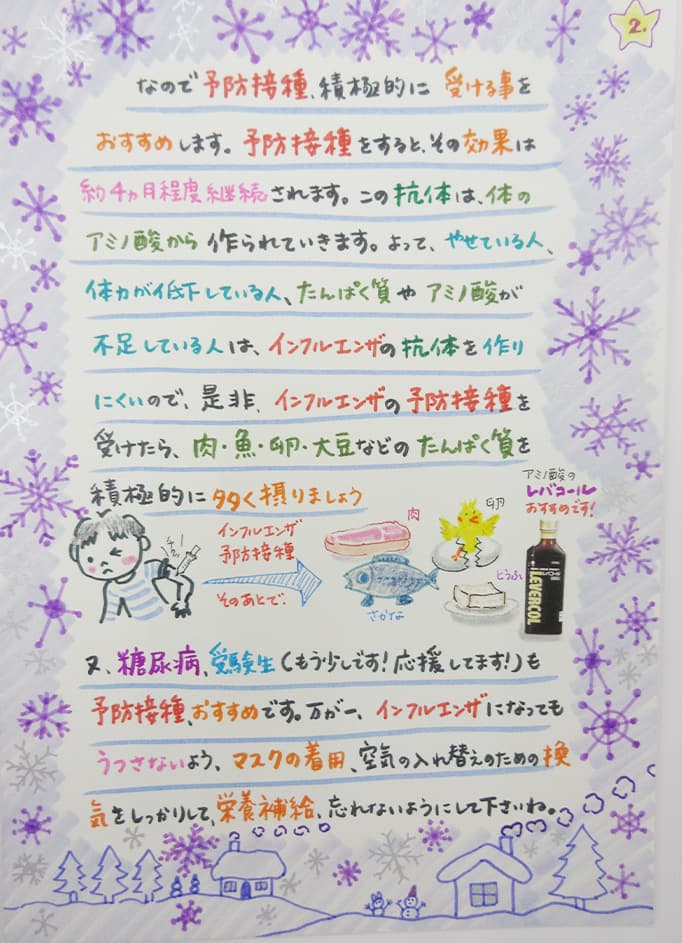 2.
なので予防接種、積極的に 受ける事を
おすすめします。予防接種をすると、その効果は
約4ヵ月程度継続されます。この抗体は、体の
アミノ酸から 作られていきます。よって、やせている人、
体力が低下している人、たんぱく質や アミノ酸が
不足している人は、インフルエンザの抗体を作り
にくいので、是非、インフルエンザの予防接種を
受けたら、肉・魚・卵・大豆などのたんぱく質を
積極的に多く摂りましょう
アミノ酸の
レバコール
おすすめです!
チュー
インフルエンザ
予防接種
そのあとで。
肉
卵
さかな
とうふ
LEVERCOL
又、糖尿病、受験生(もう少しです!応援してます!)も
予防接種、おすすめです。万が一、インフルエンザになっても
うつさないよう、マスクの着用、空気の入れ替えのための換
気をしっかりして、栄養補給、忘れないようにして下さいね。